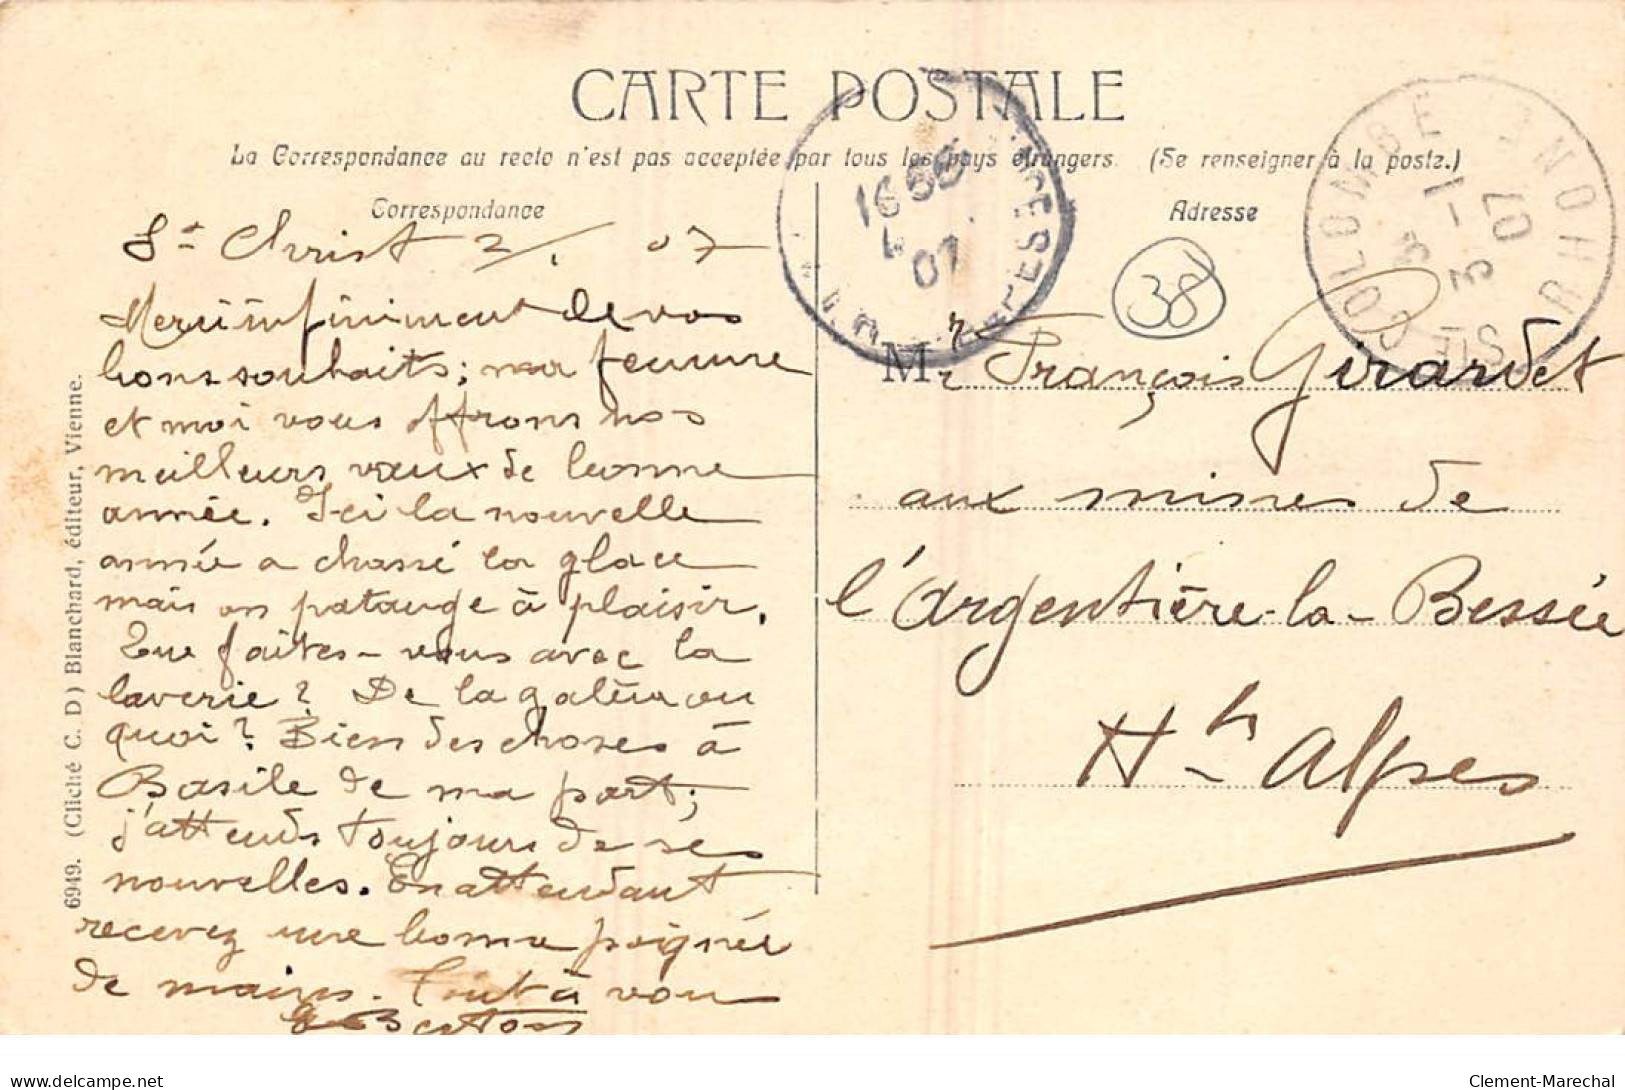 CARTE POSTALE
La Correspondance au recto n'est pas acceptée par tous les pays étrangers. (Se renseigner à la poste.)
Correspondance
Adresse
St Christ 2/1 07
Merci infiniment de vos
bons souhaits; ma femme
et moi vous offrons nos
meilleurs vœux de bonne
année. Ici la nouvelle
année a chassé la glace
mais on patauge à plaisir.
Que faites-vous avec la
laverie? De la galène ou
quoi? Bien des choses à
Basile de ma part;
j'attends toujours de ses
nouvelles. En attendant
recevez une bonne poignée
de mains. Tout à vous
38
Mr François Girardet
aux mines de
l'Argentière-la-Bessée
Htes Alpes
16 50
07
STE COLOMBE RHONE
3 - 1
07
6949. (Cliché C. D) Blanchard, éditeur, Vienne.
delcampe.net
Clement-Marechal